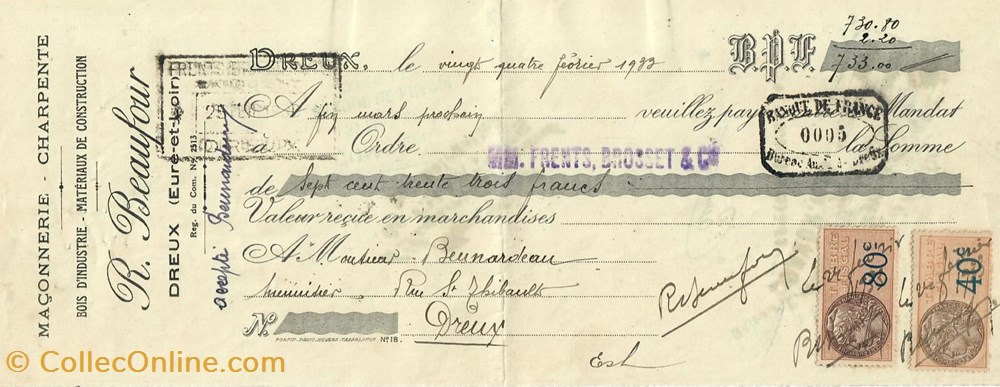 MAÇONNERIE - CHARPENTE
BOIS D'INDUSTRIE - MATÉRIAUX DE CONSTRUCTION
R. Beaufour
DREUX (Eure-et-Loir)
Reg. du Com. N° 2513
accepté Beunardeau
730.80
2.20
DREUX, le vingt quatre février 1933 B.P.F. 733.00
A fin mars prochain veuillez payer Mandat
à Ordre la Somme
MM. FRENTS, BROSSET & Cie
BANQUE DE FRANCE
0005
de sept cent trente trois francs
Valeur reçue en marchandises
A Monsieur Beunardeau
menuisier Rue St Thibault
Dreux
N°
N° 18.
80c
40c
© CollecOnline.com